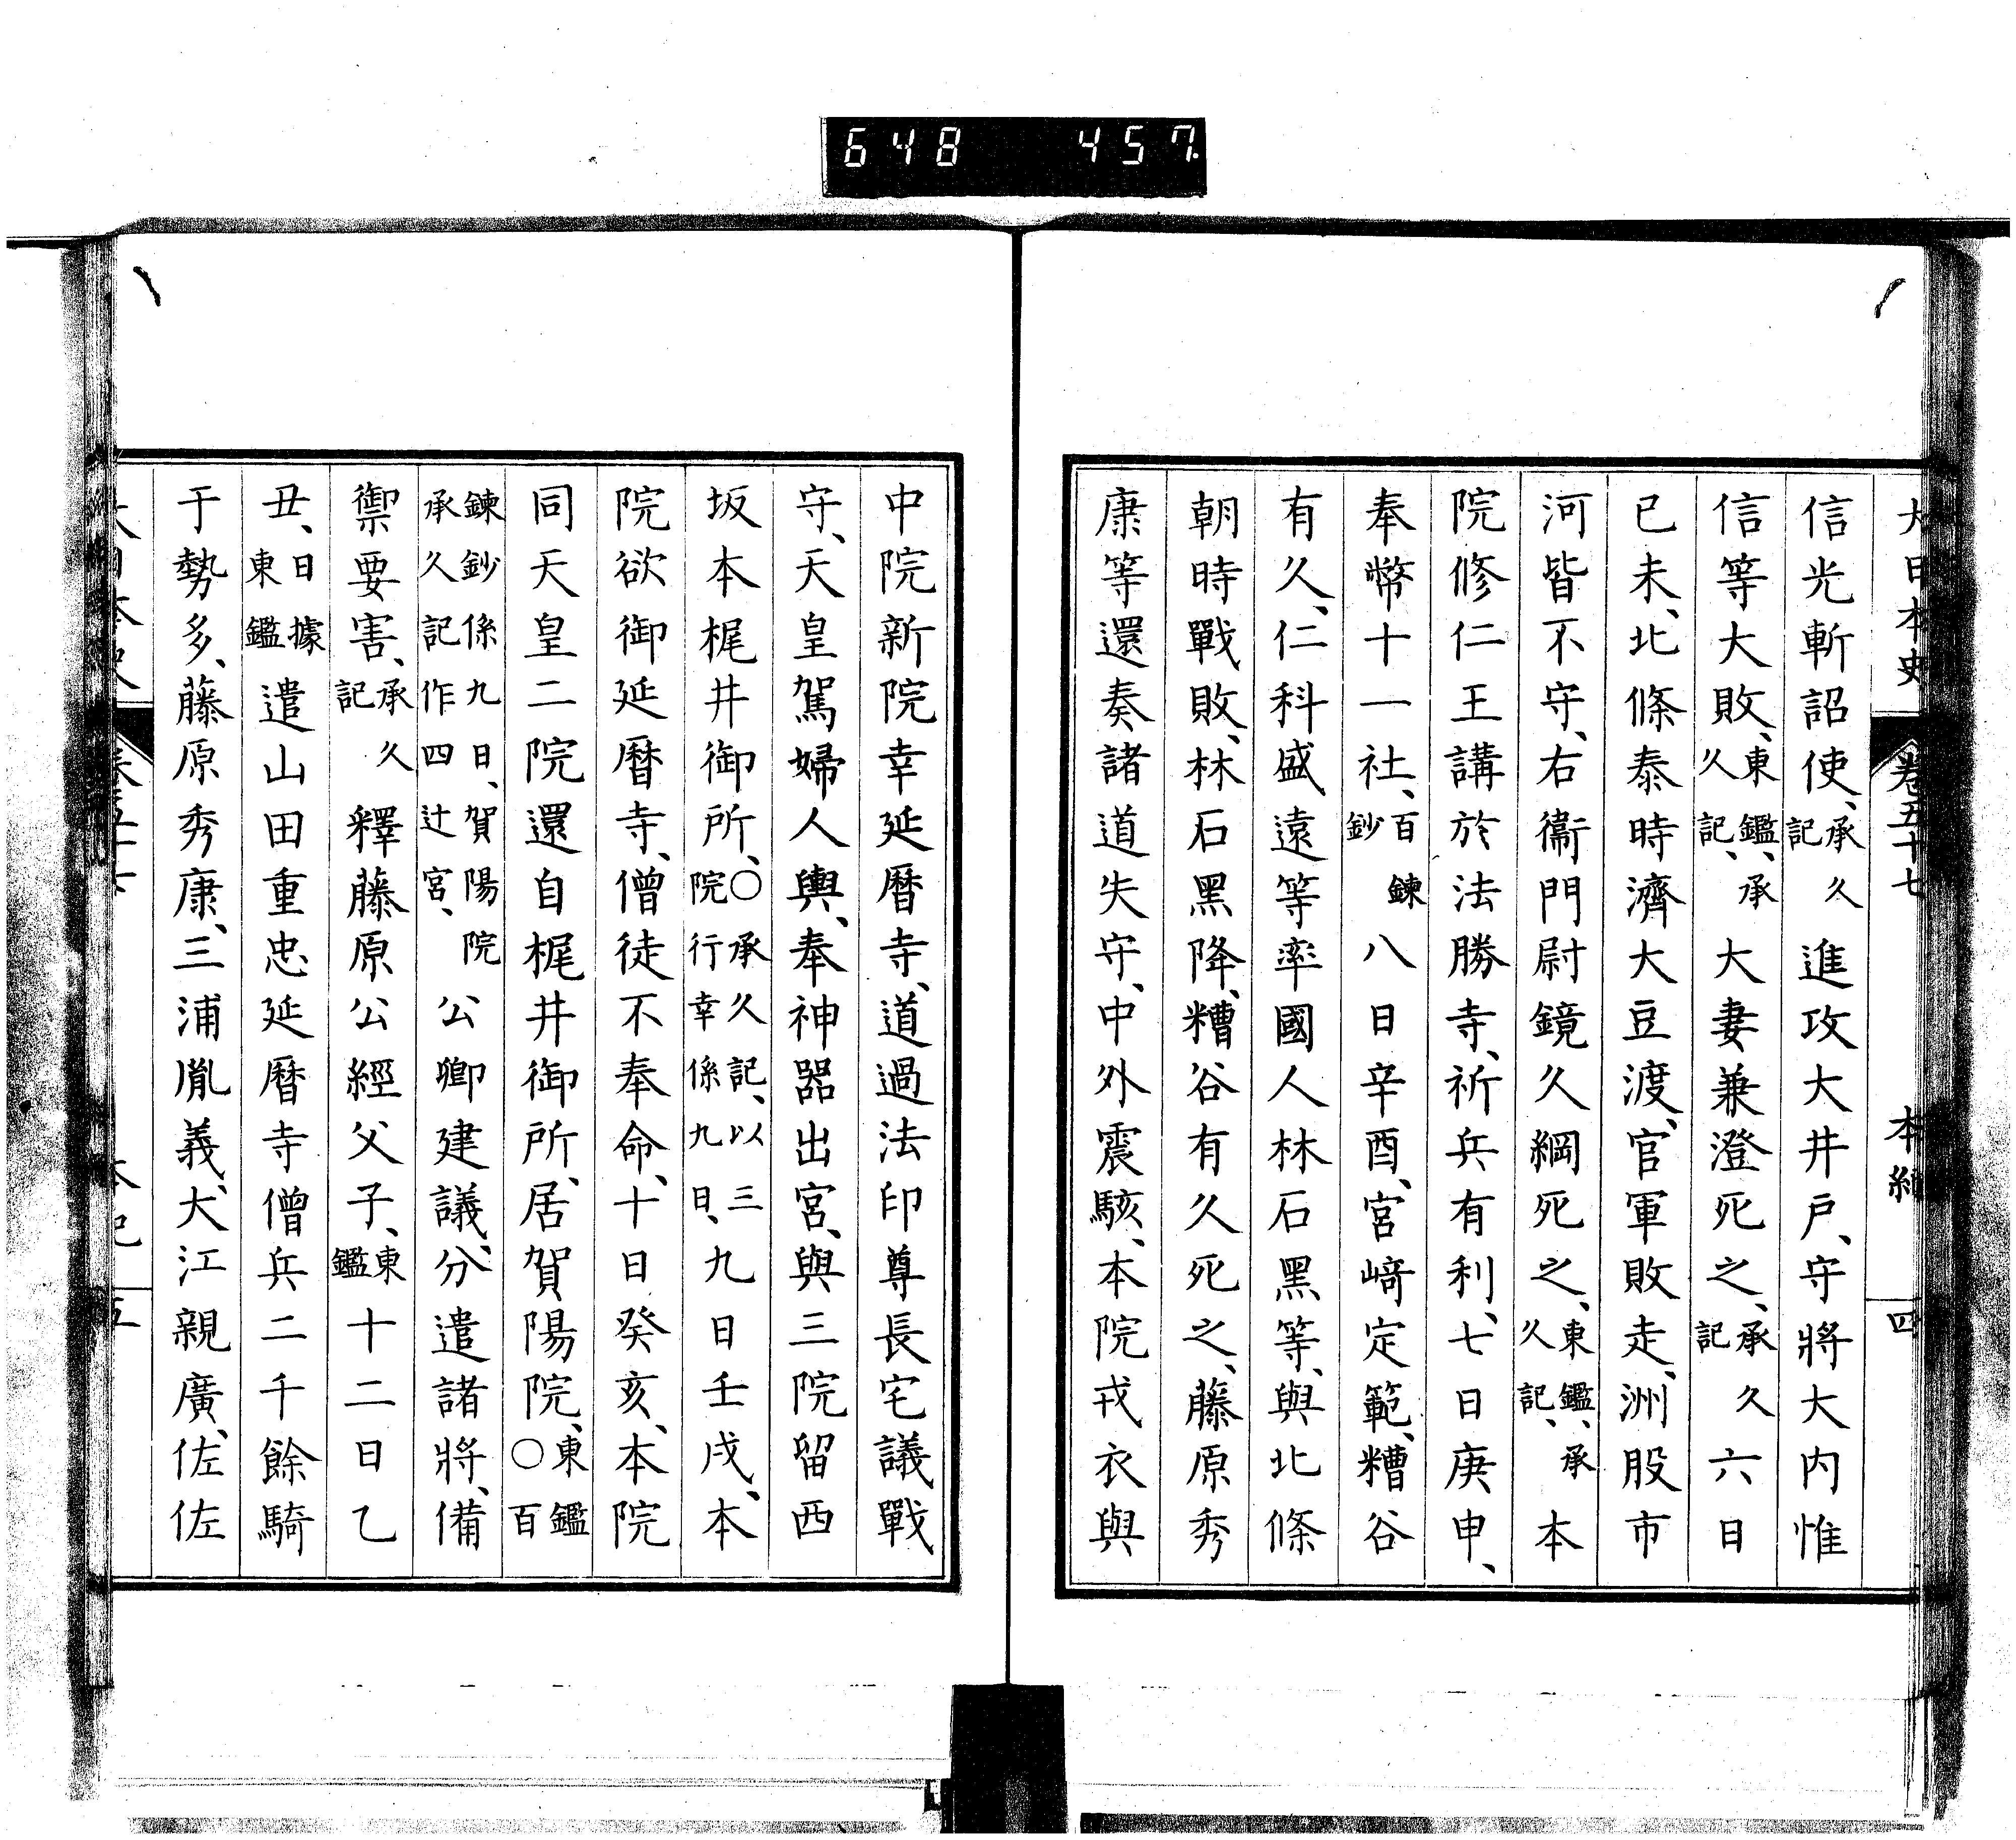 648 457
大日本史 卷五十七 本紀 四
信光斬詔使、承久記進攻大井戸、守將大内惟
信等大敗、東鑑、承久記、大妻兼澄死之、承久記六日
已未、北條泰時濟大豆渡、官軍敗走、洲股市
河皆不守、右衞門尉鏡久綱死之、東鑑、承久記、本
院修仁王講於法勝寺、祈兵有利、七日庚申、
奉幣十一社、百鍊鈔八日辛酉、宮﨑定範、糟谷
有久、仁科盛遠等率國人林石黑等、與北條
朝時戰敗、林石黑降、糟谷有久死之、藤原秀
康等還奏諸道失守、中外震駭、本院戎衣與
中院新院幸延曆寺、道過法印尊長宅議戰
守、天皇駕婦人輿、奉神器出宮、與三院留西
坂本梶井御所、○承久記、以三院行幸係九日、九日壬戌、本
院欲御延曆寺、僧徒不奉命、十日癸亥、本院
同天皇二院還自梶井御所、居賀陽院、東鑑○百
鍊鈔係九日、賀陽院承久記作四辻宮、公卿建議、分遣諸將、備
禦要害、承久記釋藤原公經父子、東鑑十二日乙
丑、日據東鑑遣山田重忠延曆寺僧兵二千餘騎
于勢多、藤原秀康、三浦胤義、大江親廣、佐佐